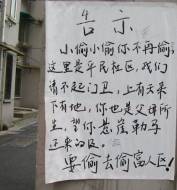 告示
小偷小偷你不再偷，
这里是平民社区，我们
请不起门卫，上有天来
下有地，你也是父母所
生，望你悬崖勒马
还来的及。
要偷去偷富人区！